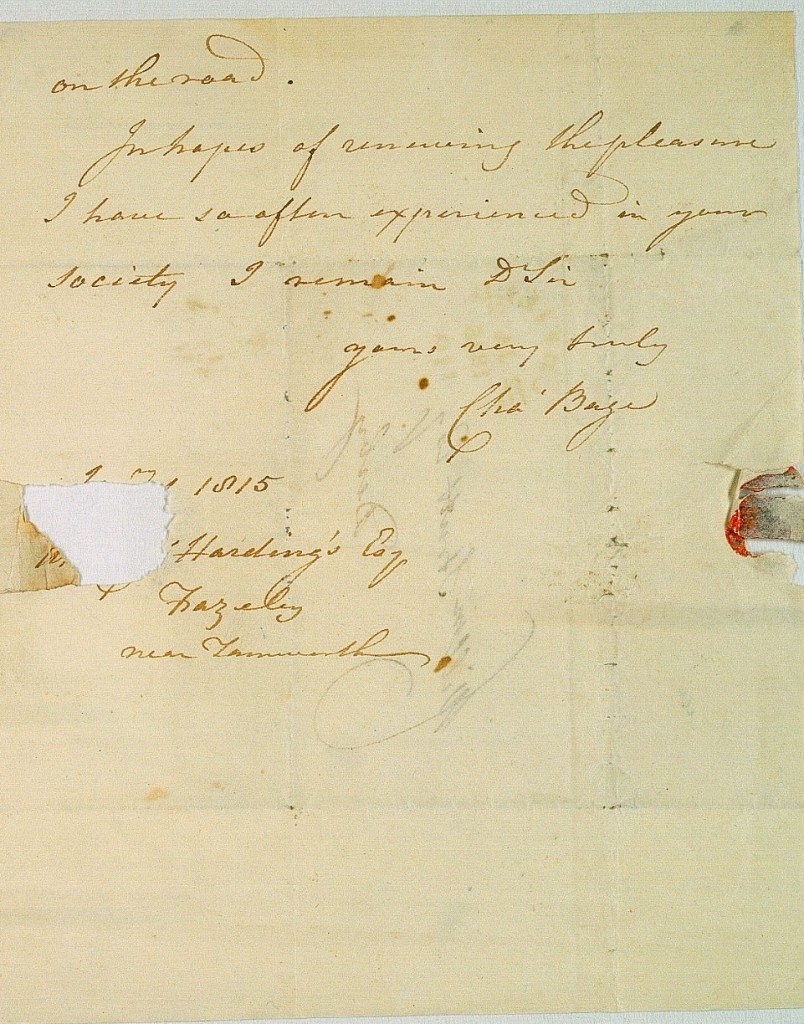 on the road.
In hopes of renewing the pleasure
I have so often experienced in your
society I remain Dr Sir
yours very truly
Chas Bage
1815
Harding's Esq
Fazeley
near Tamworth